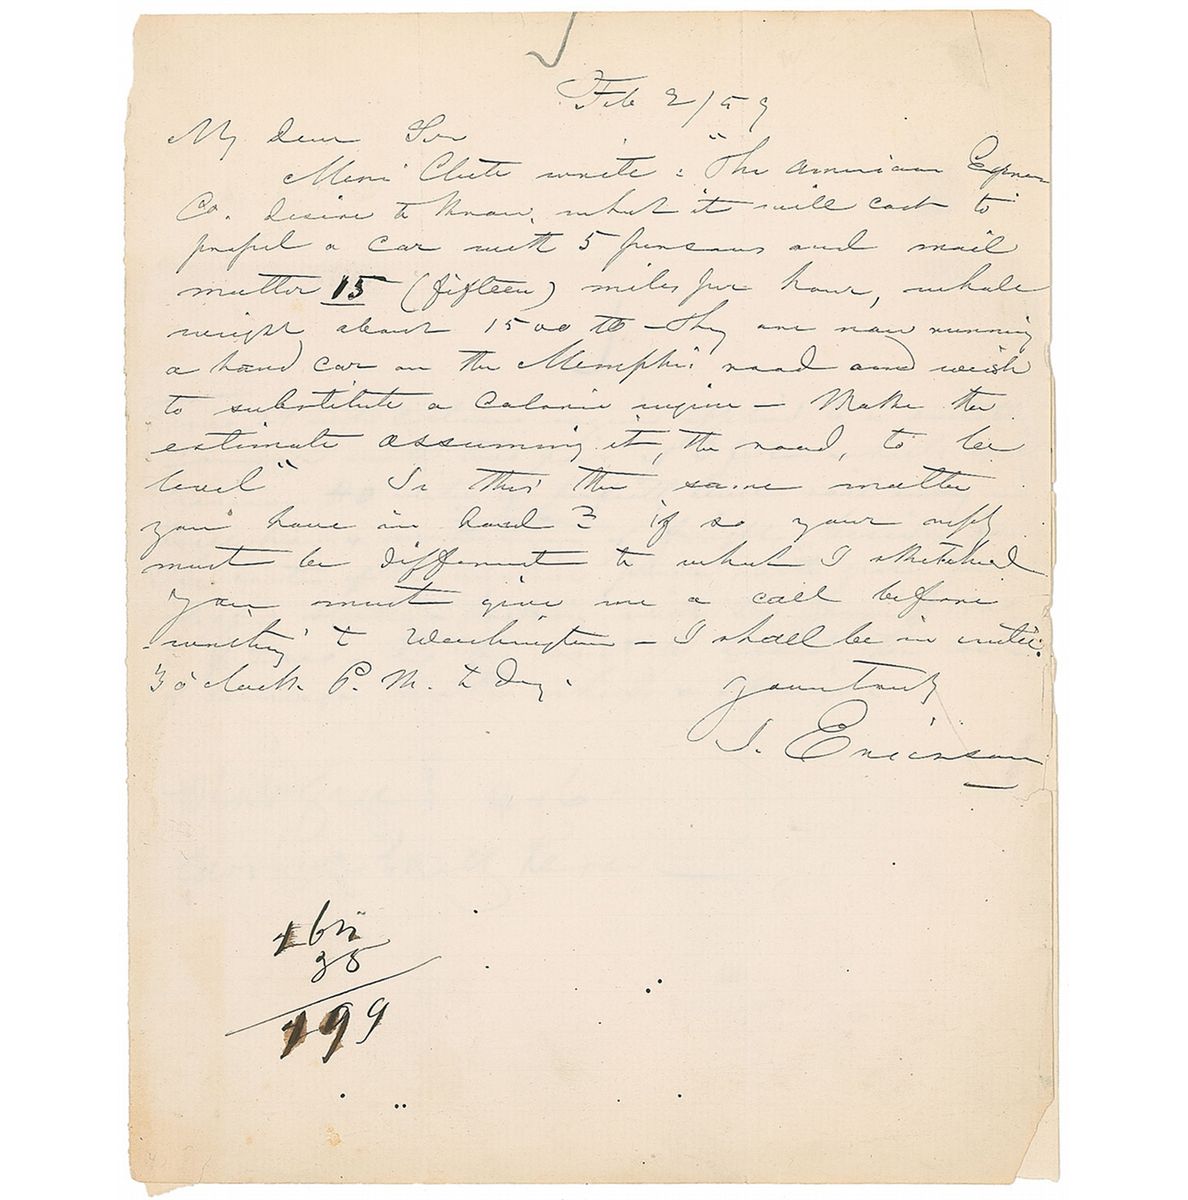 Feb 2/59
My dear Sir
Clute write: "The American Express
Co. desire to know, what it will cost to
propel a car with 5 persons and mail
matter 15 (fifteen) miles per hour, whole
weight about 1500 lb - They are now running
a hand car on the Memphis road and wish
to substitute a Caloric engine - Make the
estimate assuming it, the road, to be
level" Is this the same matter
you have in hand? if so your reply
must be different to what I sketched
You must give me a call before
writing to Washington - I shall be in until
3 o'clock P.M. to day.
Yours truly
J. Ericsson
35
199